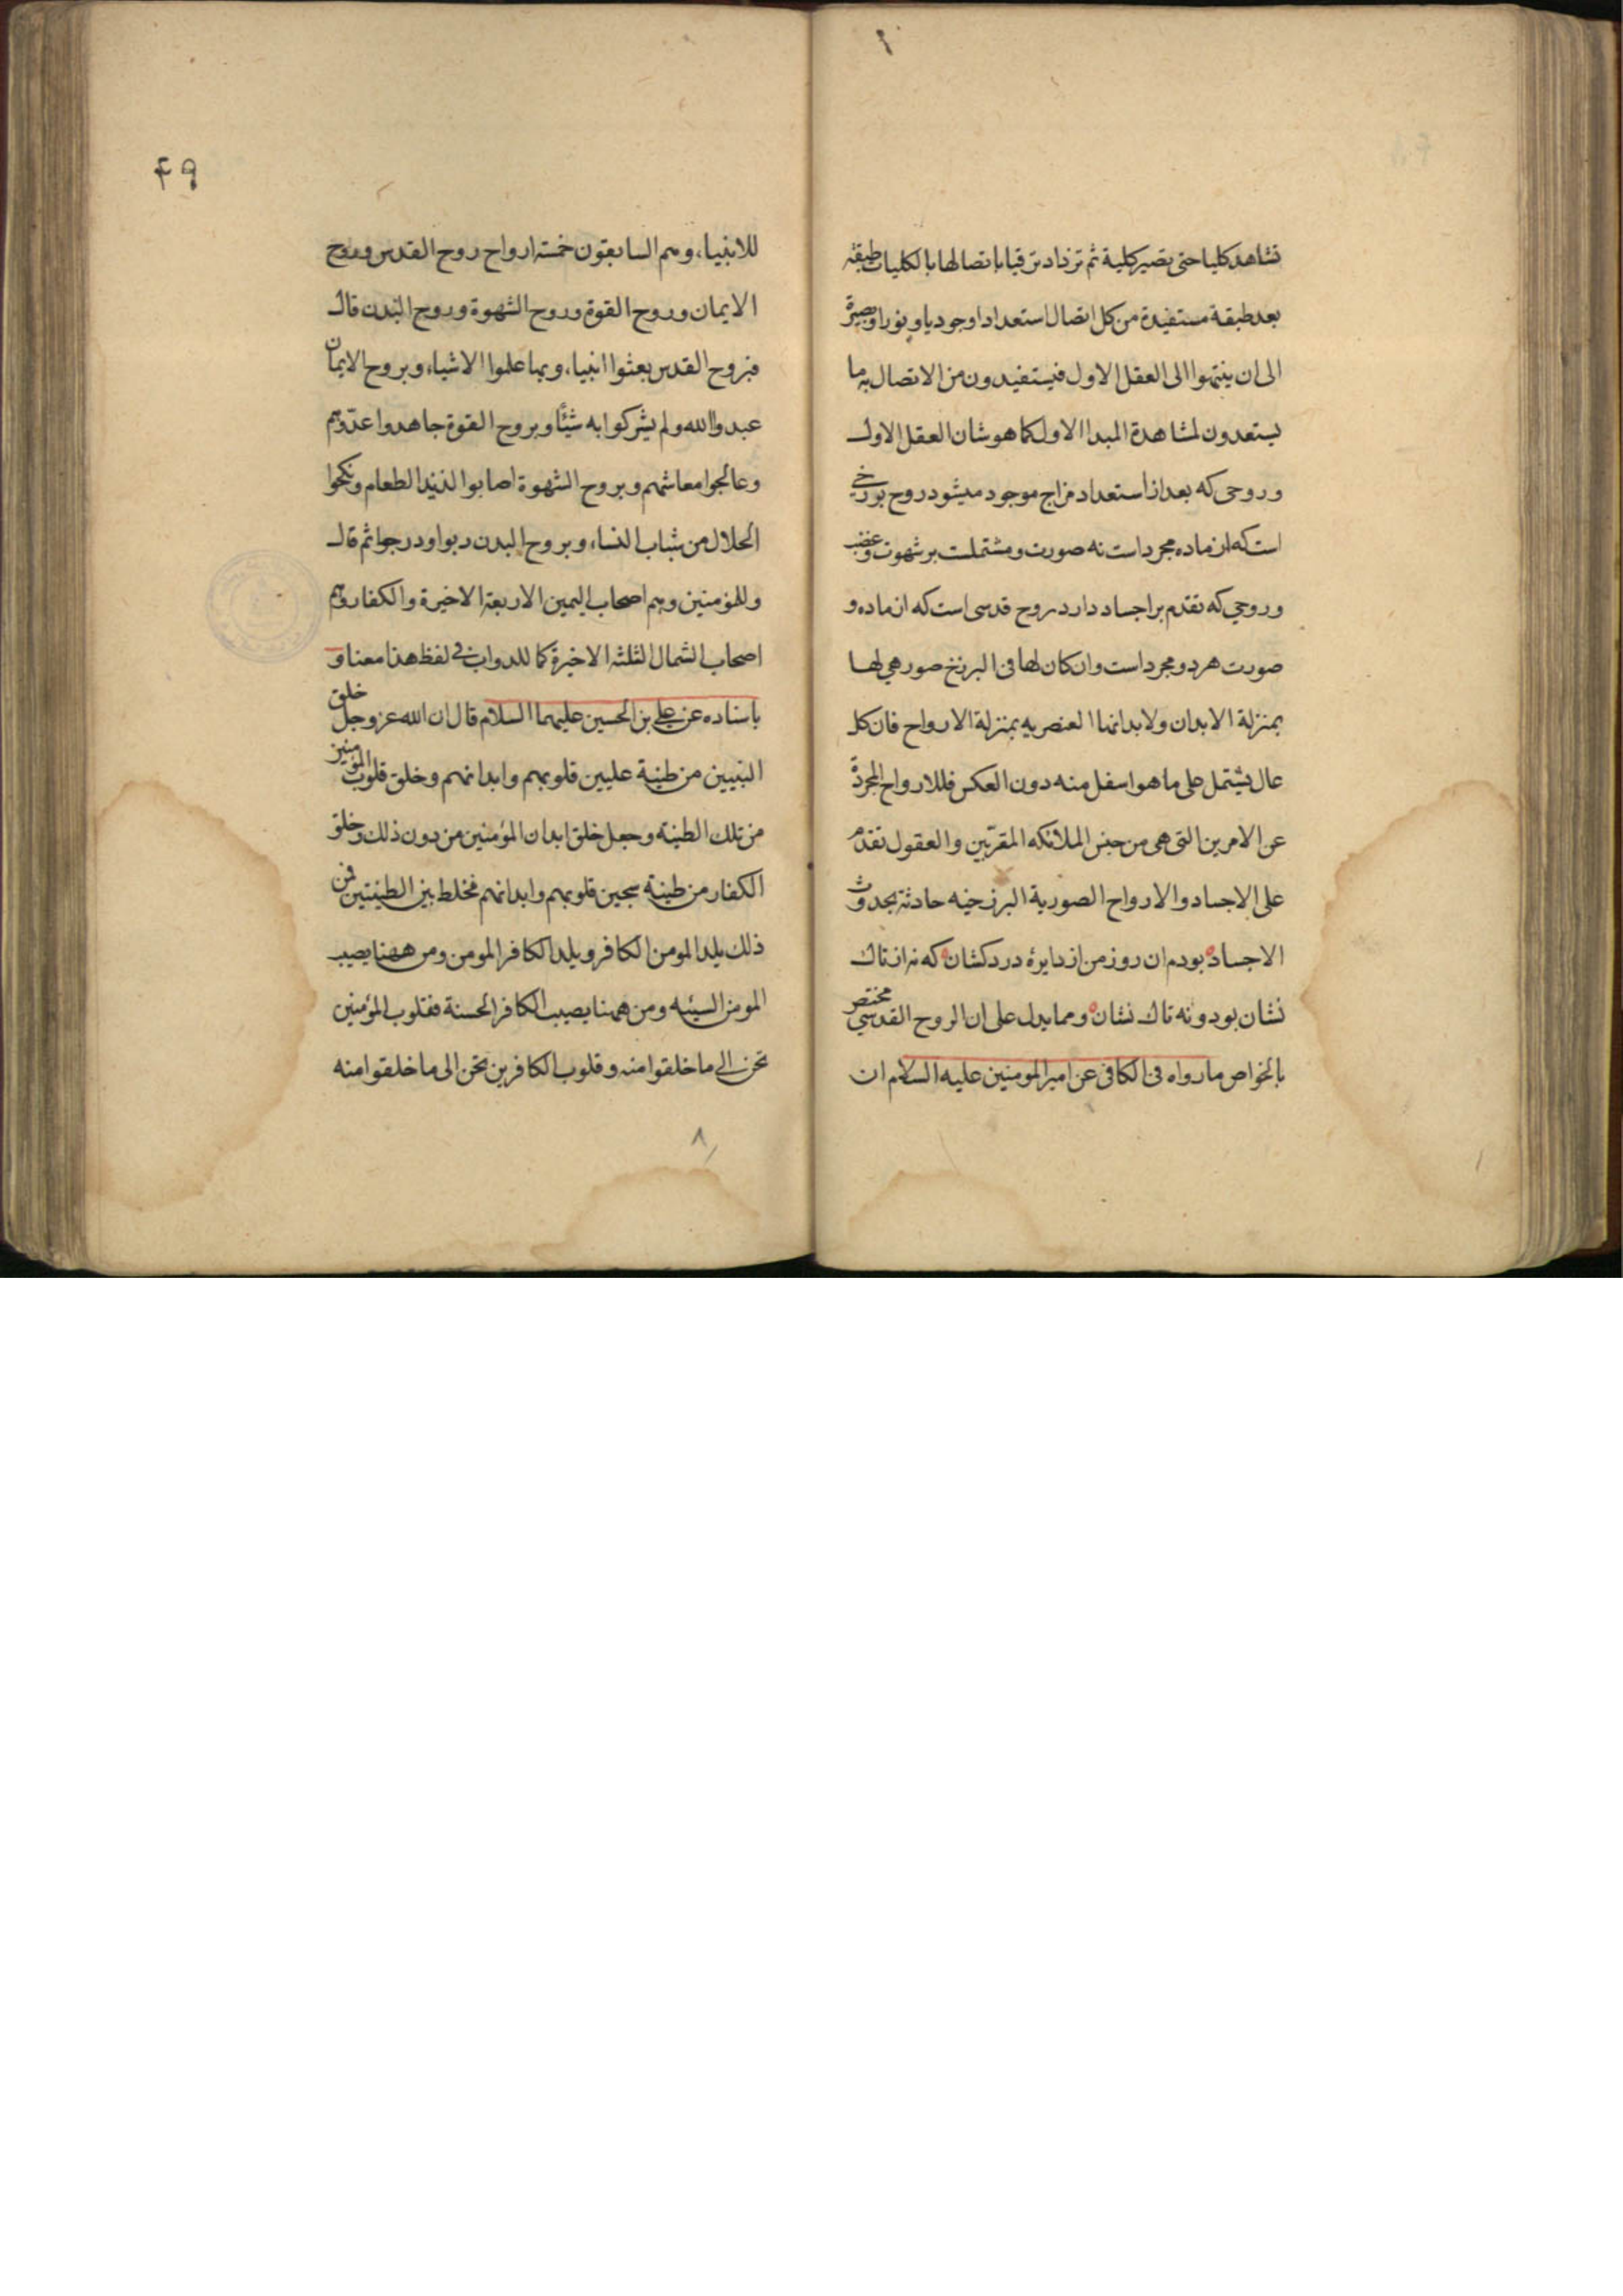 تشاهد كليا حتى بصير كلية ثم تزداد ترقيا باتصالها بالكليات طبقة
بعد طبقة مستفيدة من كل اتصال استعدادا وجوديا و نورا وبصيرة
الى ان ينتهوا الى العقل الاول فيستفيدون من الاتصال به ما
يستعدون لمشاهدة المبدا الاول كما هو شان العقل الاول
و روحى كه بعد از استعداد مزاج موجود ميشود روح برزخي
است كه از ماده مجرد است نه صورت و مشتملست بر شهوت و غضب
و روحي كه تقدم بر اجساد دارد روح قدسى است كه از ماده و
صورت هر دو مجرد است وان كان لها فى البرزخ صور هي لها
بمنزلة الابدان ولابدانها العنصريه بمنزلة الارواح فان كل
عال يشتمل على ما هو اسفل منه دون العكس فللارواح المجردة
عن الامرين التى هى من جنس الملائكه المقربين و العقول تقدم
على الاجساد و الارواح الصورية البرزخيه حادثة بحدوث
الاجساد بودم ان روز من از دايرۀ درد كشان كه نه از تاك
نشان بود و نه تاك نشان و مما يدل على ان الروح القدسي مختص
بالخواص ما رواه فى الكافى عن امير المومنين عليه السلام ان
۴۹
للانبياء وهم السابقون خمسة ارواح روح القدس و روح
الايمان و روح القوة و روح الشهوة و روح البدن قال
فبروح القدس بعثوا انبياء وبها علموا الاشياء وبروح الايمان
عبدوا الله ولم يشركوا به شيئا وبروح القوة جاهدوا عدوهم
وعالجوا معاشهم وبروح الشهوة اصابوا لذيذ الطعام ونكحوا
الحلال من شباب النساء وبروح البدن دبوا ودرجوا ثم قال
وللمؤمنين وهم اصحاب اليمين الاربعة الاخيرة والكفار وهم
اصحاب الشمال الثلثة الاخيرة كما للدواب في لفظ هذا معناه و
باسناده عن علي بن الحسين عليهما السلام قال ان الله عز وجل خلق
النبيين من طينة عليين قلوبهم وابدانهم وخلق قلوب المؤمنين
من تلك الطينه وجعل خلق ابدان المؤمنين من دون ذلك وخلق
الكفار من طينة سجين قلوبهم وابدانهم فخلط بين الطينتين فمن
ذلك يلد المومن الكافر ويلد الكافر المومن ومن ههنا يصيب
المومن السيئه ومن ههنا يصيب الكافر الحسنة فقلوب المؤمنين
تحن الى ما خلقوا منه وقلوب الكافرين تحن الى ما خلقوا منه